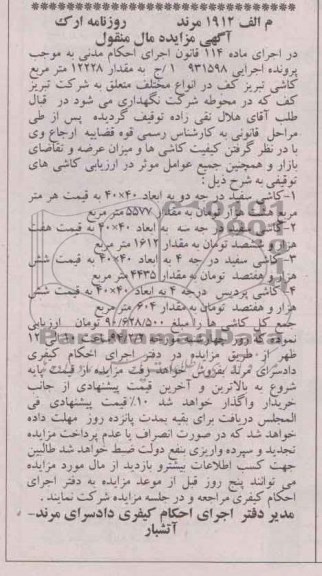 م الف ۱۹۱۲ مرند روزنامه ارک
آگهی مزایده مال منقول
در اجرای ماده ۱۱۴ قانون اجرای احکام مدنی به موجب
پرونده اجرایی ۹۳۱۵۹۸ ۱/ج به مقدار ۱۲۲۲۸ متر مربع
کاشی تبریز کف در انواع مختلف متعلق به شرکت تبریز
کف که در محوطه شرکت نگهداری می شود در قبال
طلب آقای هلال نقی زاده توقیف گردیده پس از طی
مراحل قانونی به کارشناس رسمی قوه قضاییه ارجاع وی
با در نظر گرفتن کیفیت کاشی ها و میزان عرضه و تقاضای
بازار و همچنین جمیع عوامل موثر در ارزیابی کاشی های
توقیفی به شرح ذیل :
۱-کاشی سفید در جه دو به ابعاد ۴۰×۴۰ به قیمت هر متر
مربع هزار تومان به مقدار ۵۵۷۷ متر مربع
۲-کاشی سفید در جه سه به ابعاد ۴۰×۴۰ به قیمت هفت
هزار و ششصد تومان به مقدار ۱۶۱۲ متر مربع
۳-کاشی سفید در جه ۴ به ابعاد ۴۰×۴۰ به قیمت شش
هزار و هفتصد تومان به مقدار ۴۴۳۵ متر مربع
۴-کاشی پردیس درجه ۴ به ابعاد ۴۰×۴۰ به قیمت شش
هزار و هفتصد تومان به مقدار ۶۰۴ متر مربع
جمع کل کاشی ها را مبلغ ۹۰/۶۲۸/۵۰۰ تومان ارزیابی
نموده که در روز چهارشنبه مورخه ساعت ۱۰ الی ۱۲
ظهر از طریق مزایده در دفتر اجرای احکام کیفری
دادسرای مرند بفروش خواهد رفت مزایده از قیمت پایه
شروع به بالاترین و آخرین قیمت پیشنهادی از جانب
خریدار واگذار خواهد شد ۱۰٪ قیمت پیشنهادی فی
المجلس دریافت برای بقیه بمدت پانزده روز مهلت داده
خواهد شد که در صورت انصراف یا عدم پرداخت مزایده
تجدید و سپرده واریزی بنفع دولت ضبط خواهد شد طالبین
جهت کسب اطلاعات بیشترو بازدید از مال مورد مزایده
می توانند پنج روز قبل از موعد مزایده به دفتر اجرای
احکام کیفری مراجعه و در جلسه مزایده شرکت نمایند .
مدیر دفتر اجرای احکام کیفری دادسرای مرند-
آتشبار